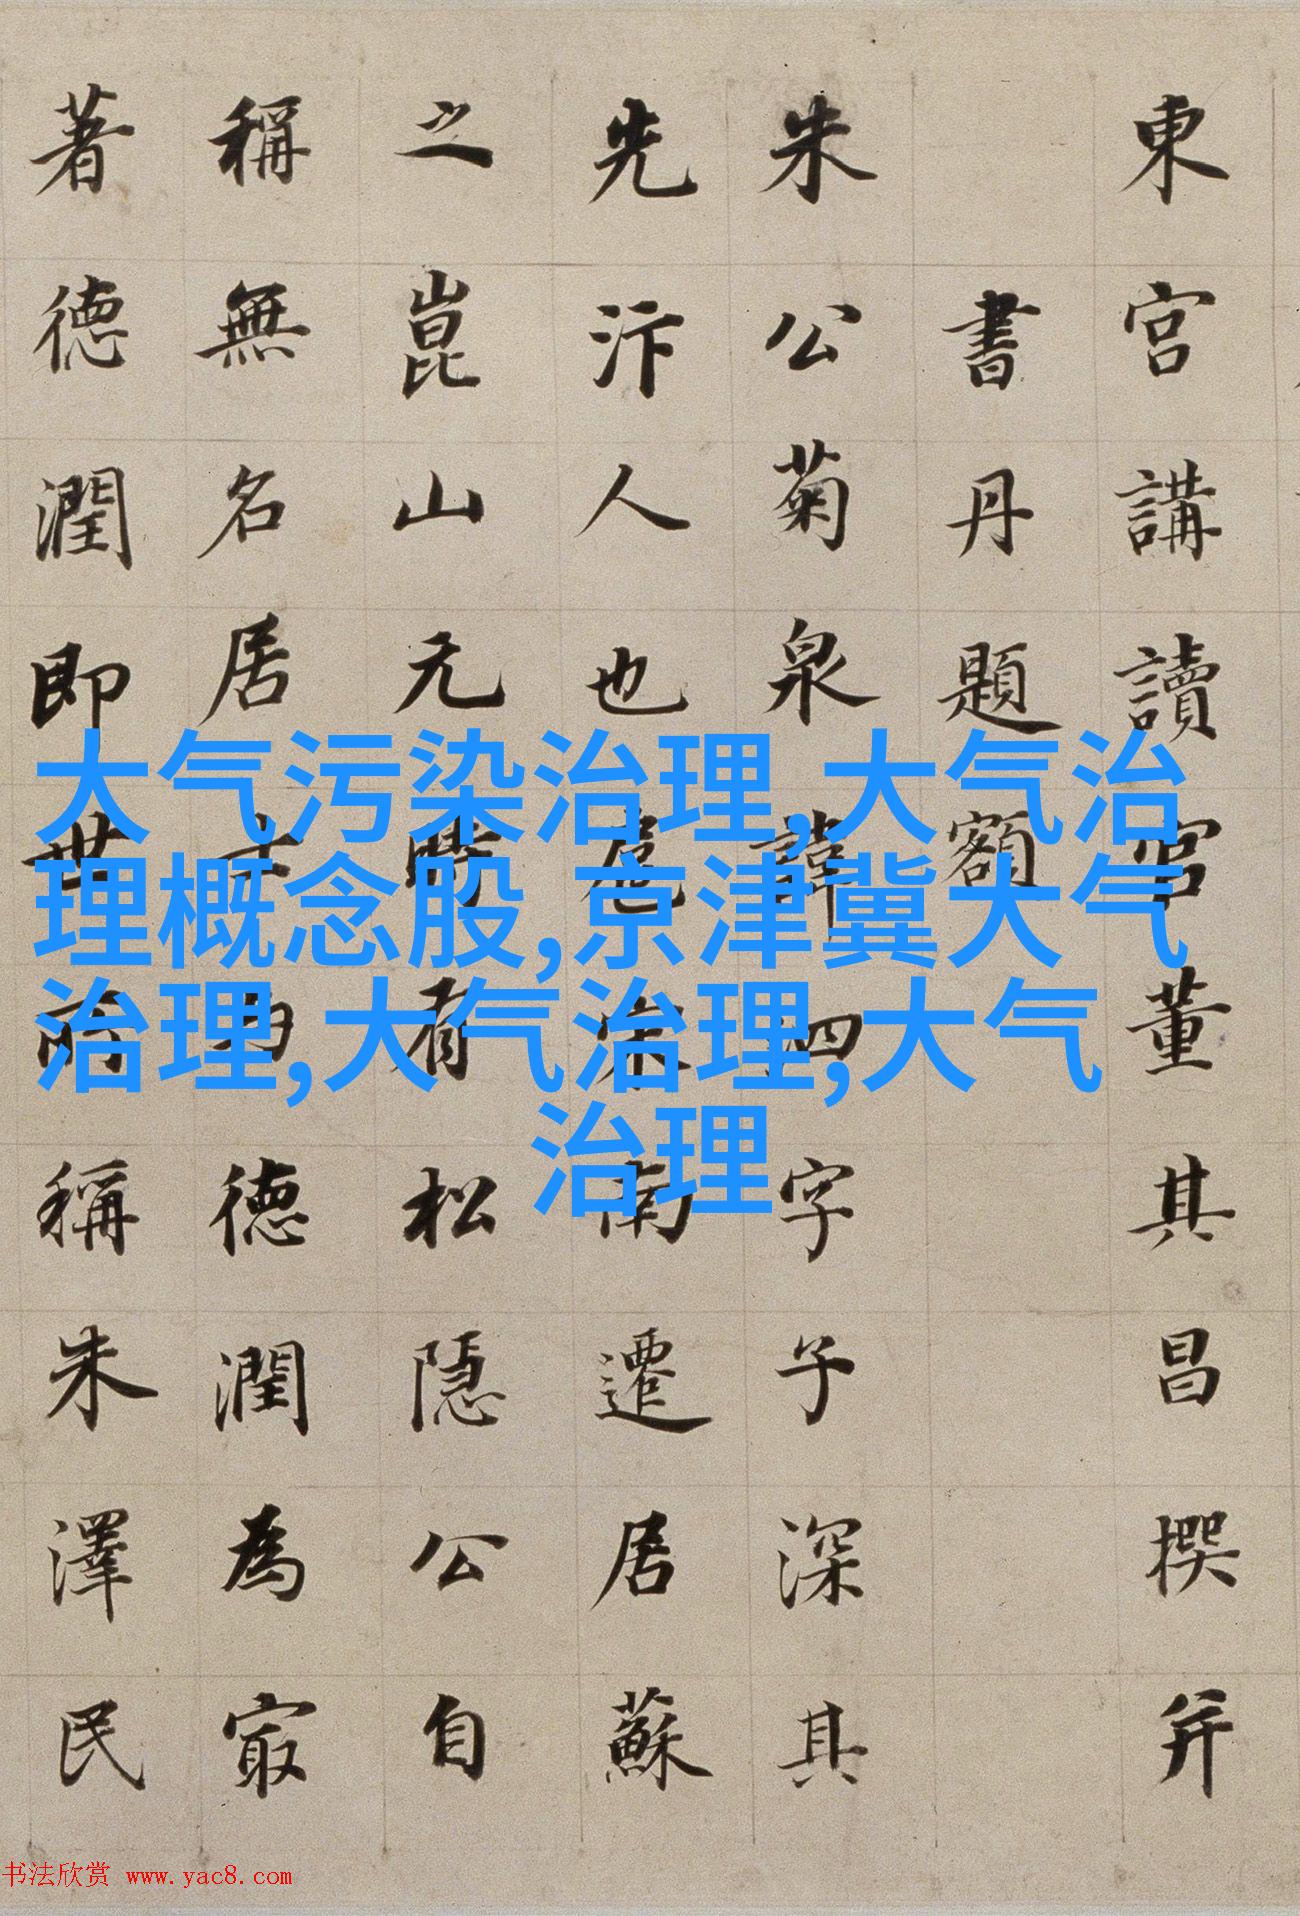 東宮講讀官董其昌撰并
書丹題額
朱公菊泉諱泗字子深其
先汴人也扈宋南遷居蘇
之崑山元時有松隱公自
稱無名居士德潤為㝡
著德潤即世所稱朱澤民
大气污染治理,大气治
理概念股,京津冀大气
治理,大气治理,大气
治理
书法欣赏 www.yac8.com